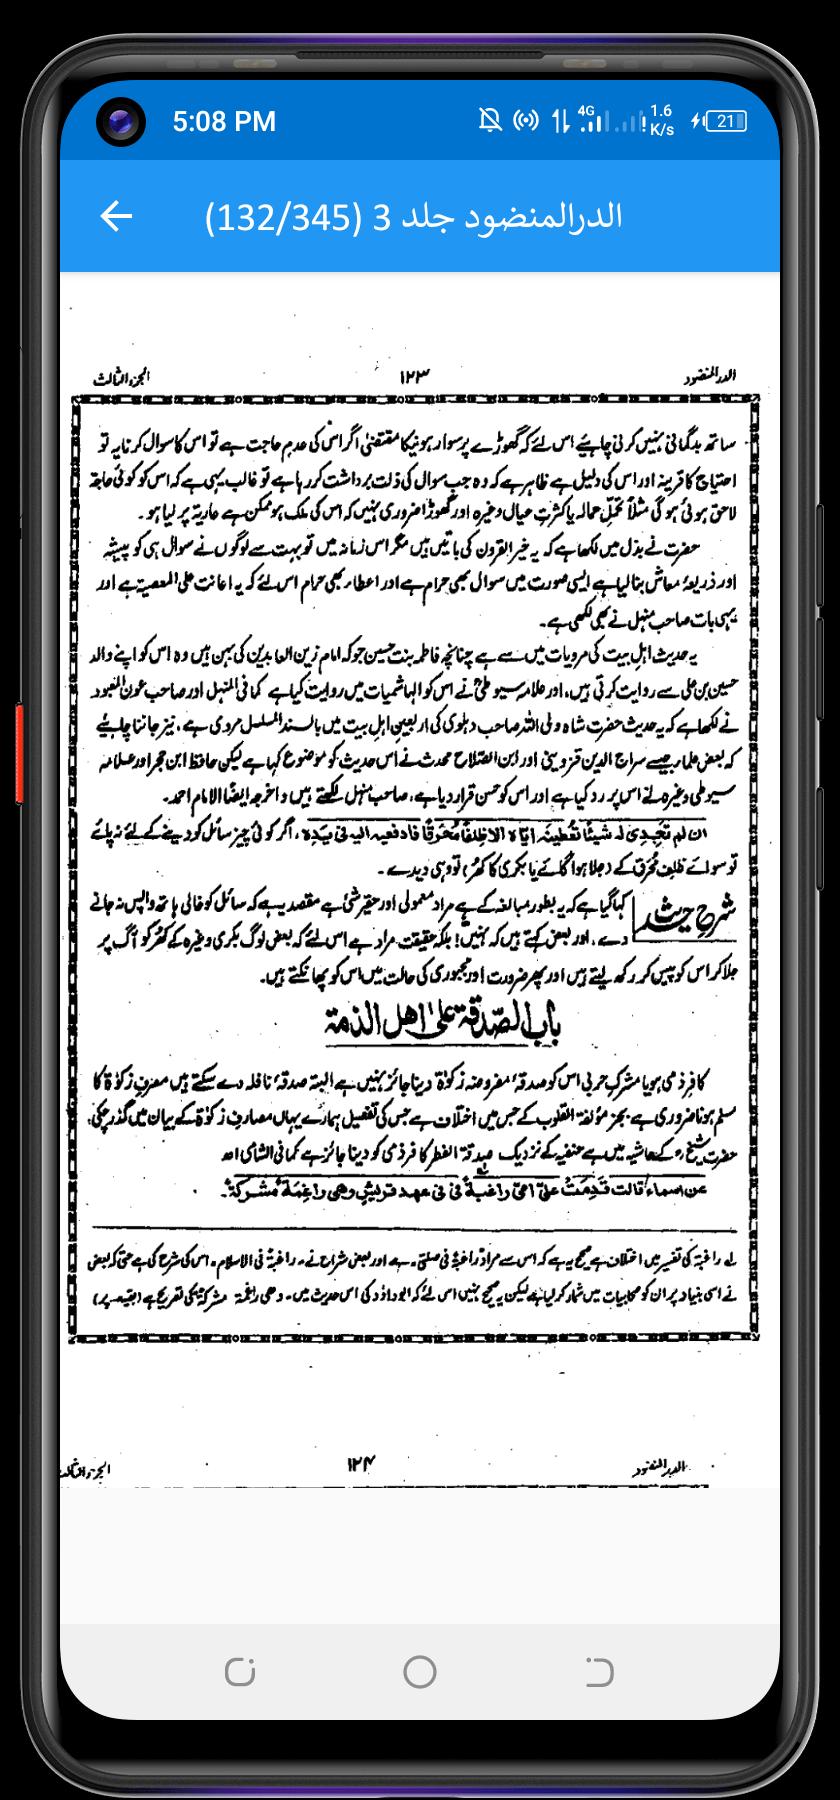 5:08 PM
4G
1.6 K/s
21
الدرالمنضود جلد 3 (132/345)
الدر المنضود ۱۲۳ الجزء الثالث
ساتھ بدگمانی نہیں کرنی چاہیے اس لئے کہ گھوڑے پر سوار ہونیکا مقتضیٰ اگر اس کی عدم حاجت ہے تو اس کا سوال کرنا یہ تو
احتیاج کا قرینہ اور اس کی دلیل ہے ظاہر ہے کہ وہ جب سوال کی ذلت برداشت کر رہا ہے تو غالب یہی ہے کہ اس کو کوئی حاجۃ
لاحق ہوئی ہوگی مثلاً تحمّلِ حمالہ یا کثرتِ عیال وغیرہ اور گھوڑا ضروری نہیں کہ اس کی ملک ہو ممکن ہے عاریۃً پر لیا ہو۔
حضرت نے بذل میں لکھا ہے کہ یہ خیر القرون کی باتیں ہیں مگر اس زمانہ میں تو بہت سے لوگوں نے سوال ہی کو پیشہ
اور ذریعۂ معاش بنالیا ہے ایسی صورت میں سوال بھی حرام ہے اور اعطاء بھی حرام اس لئے کہ یہ اعانت علی المعصیۃ ہے اور
یہی بات صاحب منہل نے بھی لکھی ہے۔
یہ حدیث اہل بیت کی مرویات میں سے ہے چنانچہ فاطمہ بنت حسین جو کہ امام زین العابدین کی بہن ہیں وہ اس کو اپنے والد
حسین بن علی سے روایت کرتی ہیں، اور علامہ سیوطیؒ نے اس کو الہاشمیات میں روایت کیا ہے کما فی المنہل اور صاحب عون المعبود
نے لکھا ہے کہ یہ حدیث حضرت شاہ ولی اللہ صاحب دہلوی کی اربعین اہل بیت میں بالسند المسلسل مروی ہے، نیز جاننا چاہیئے
کہ بعض علماء جیسے سراج الدین قزوینی اور ابن الصلاح محدث نے اس حدیث کو موضوع کہا ہے لیکن حافظ ابن حجر اور علامہ
سیوطی وغیرہ نے اس پر رد کیا ہے اور اس کو حسن قرار دیا ہے، صاحب منہل لکھتے ہیں واخرجہ ایضًا الامام احمد۔
ان لم تجدی لہ شیئا تعطینہ ایاہ الا ظلفًا محرقًا فادفعیہ الیہ فی یدہ، اگر کوئی چیز سائل کو دینے کے لئے نہ پائے
تو سوائے ظلف محرق کے (جلا ہوا گائے یا بکری کا کھر) تو وہی دیدے۔
شرح حدیث کہا گیا ہے کہ یہ بطور مبالغہ کے ہے مراد معمولی اور حقیر شئ ہے مقصد یہ ہے کہ سائل کو خالی ہاتھ واپس نہ جانے
دے، اور بعض کہتے ہیں کہ نہیں! بلکہ حقیقت مراد ہے اس لئے کہ بعض لوگ بکری وغیرہ کے کھر کو آگ پر
جلا کر اس کو پیس کر رکھ لیتے ہیں اور پھر ضرورت اور مجبوری کی حالت میں اس کو پھانکتے ہیں۔
باب الصدقۃ علیٰ اھل الذمۃ
کافر ذمی ہو یا مشرک حربی اس کو صدقۂ مفروضہ زکوٰۃ دینا جائز نہیں ہے البتہ صدقۂ نافلہ دے سکتے ہیں مصرف زکوٰۃ کا
مسلم ہونا ضروری ہے، بجز مؤلفۃ القلوب کے جس میں اختلاف ہے جس کی تفصیل ہمارے یہاں مصارف زکوٰۃ کے بیان میں گذر چکی،
حضرت شیخؒ کے حاشیہ میں ہے حنفیہ کے نزدیک صدقۃ الفطر کافر ذمی کو دینا جائز ہے کما فی الشامی اھ
عن اسماء قالت قدمت علیّ امی راغبۃ فی فی عھد قریش وھی راغمۃ مشرکۃ۔
لے راغبۃ کی تفسیر میں اختلاف ہے صحیح یہ ہے کہ اس سے مراد راغبۃ فی صلتی۔ ہے اور بعض شراح نے۔ راغبۃ فی الاسلام۔ اس کی شرح کی ہے حتی کہ بعض
نے اسی بنیاد پر ان کو صحابیات میں شمار کر لیا ہے لیکن یہ صحیح نہیں اس لئے کہ ابوداؤد کی اس حدیث میں۔ وھی راغمۃ مشرکۃ کی تصریح ہے (بقیہ ص پر)
الدر المنضود ۱۲۴ الجزء الثالث